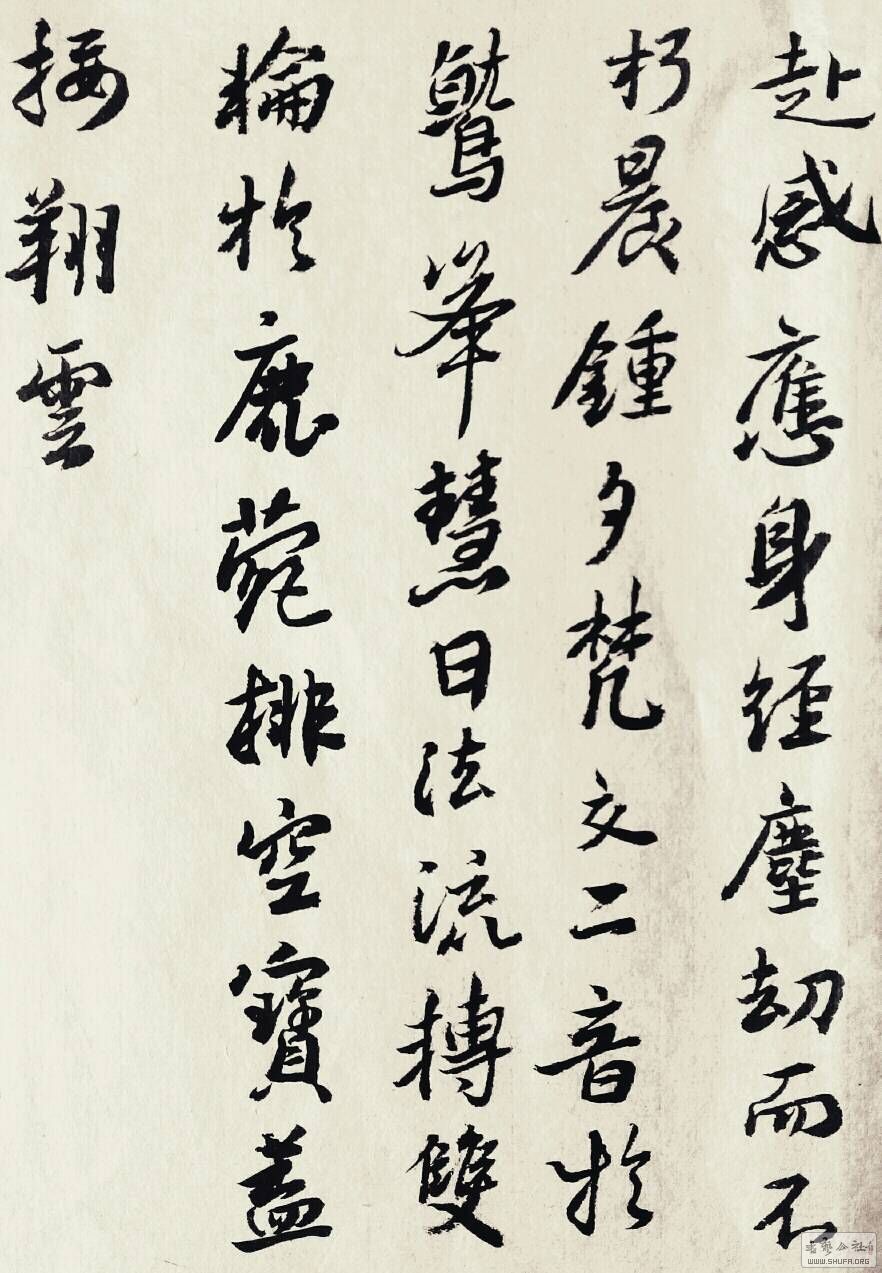 赴感應身經塵劫而不
朽晨鍾夕梵交二音於
鷲峯慧日法流轉雙
輪於鹿菀排空寶蓋
接翔雲
WWW.SHUFA.ORG